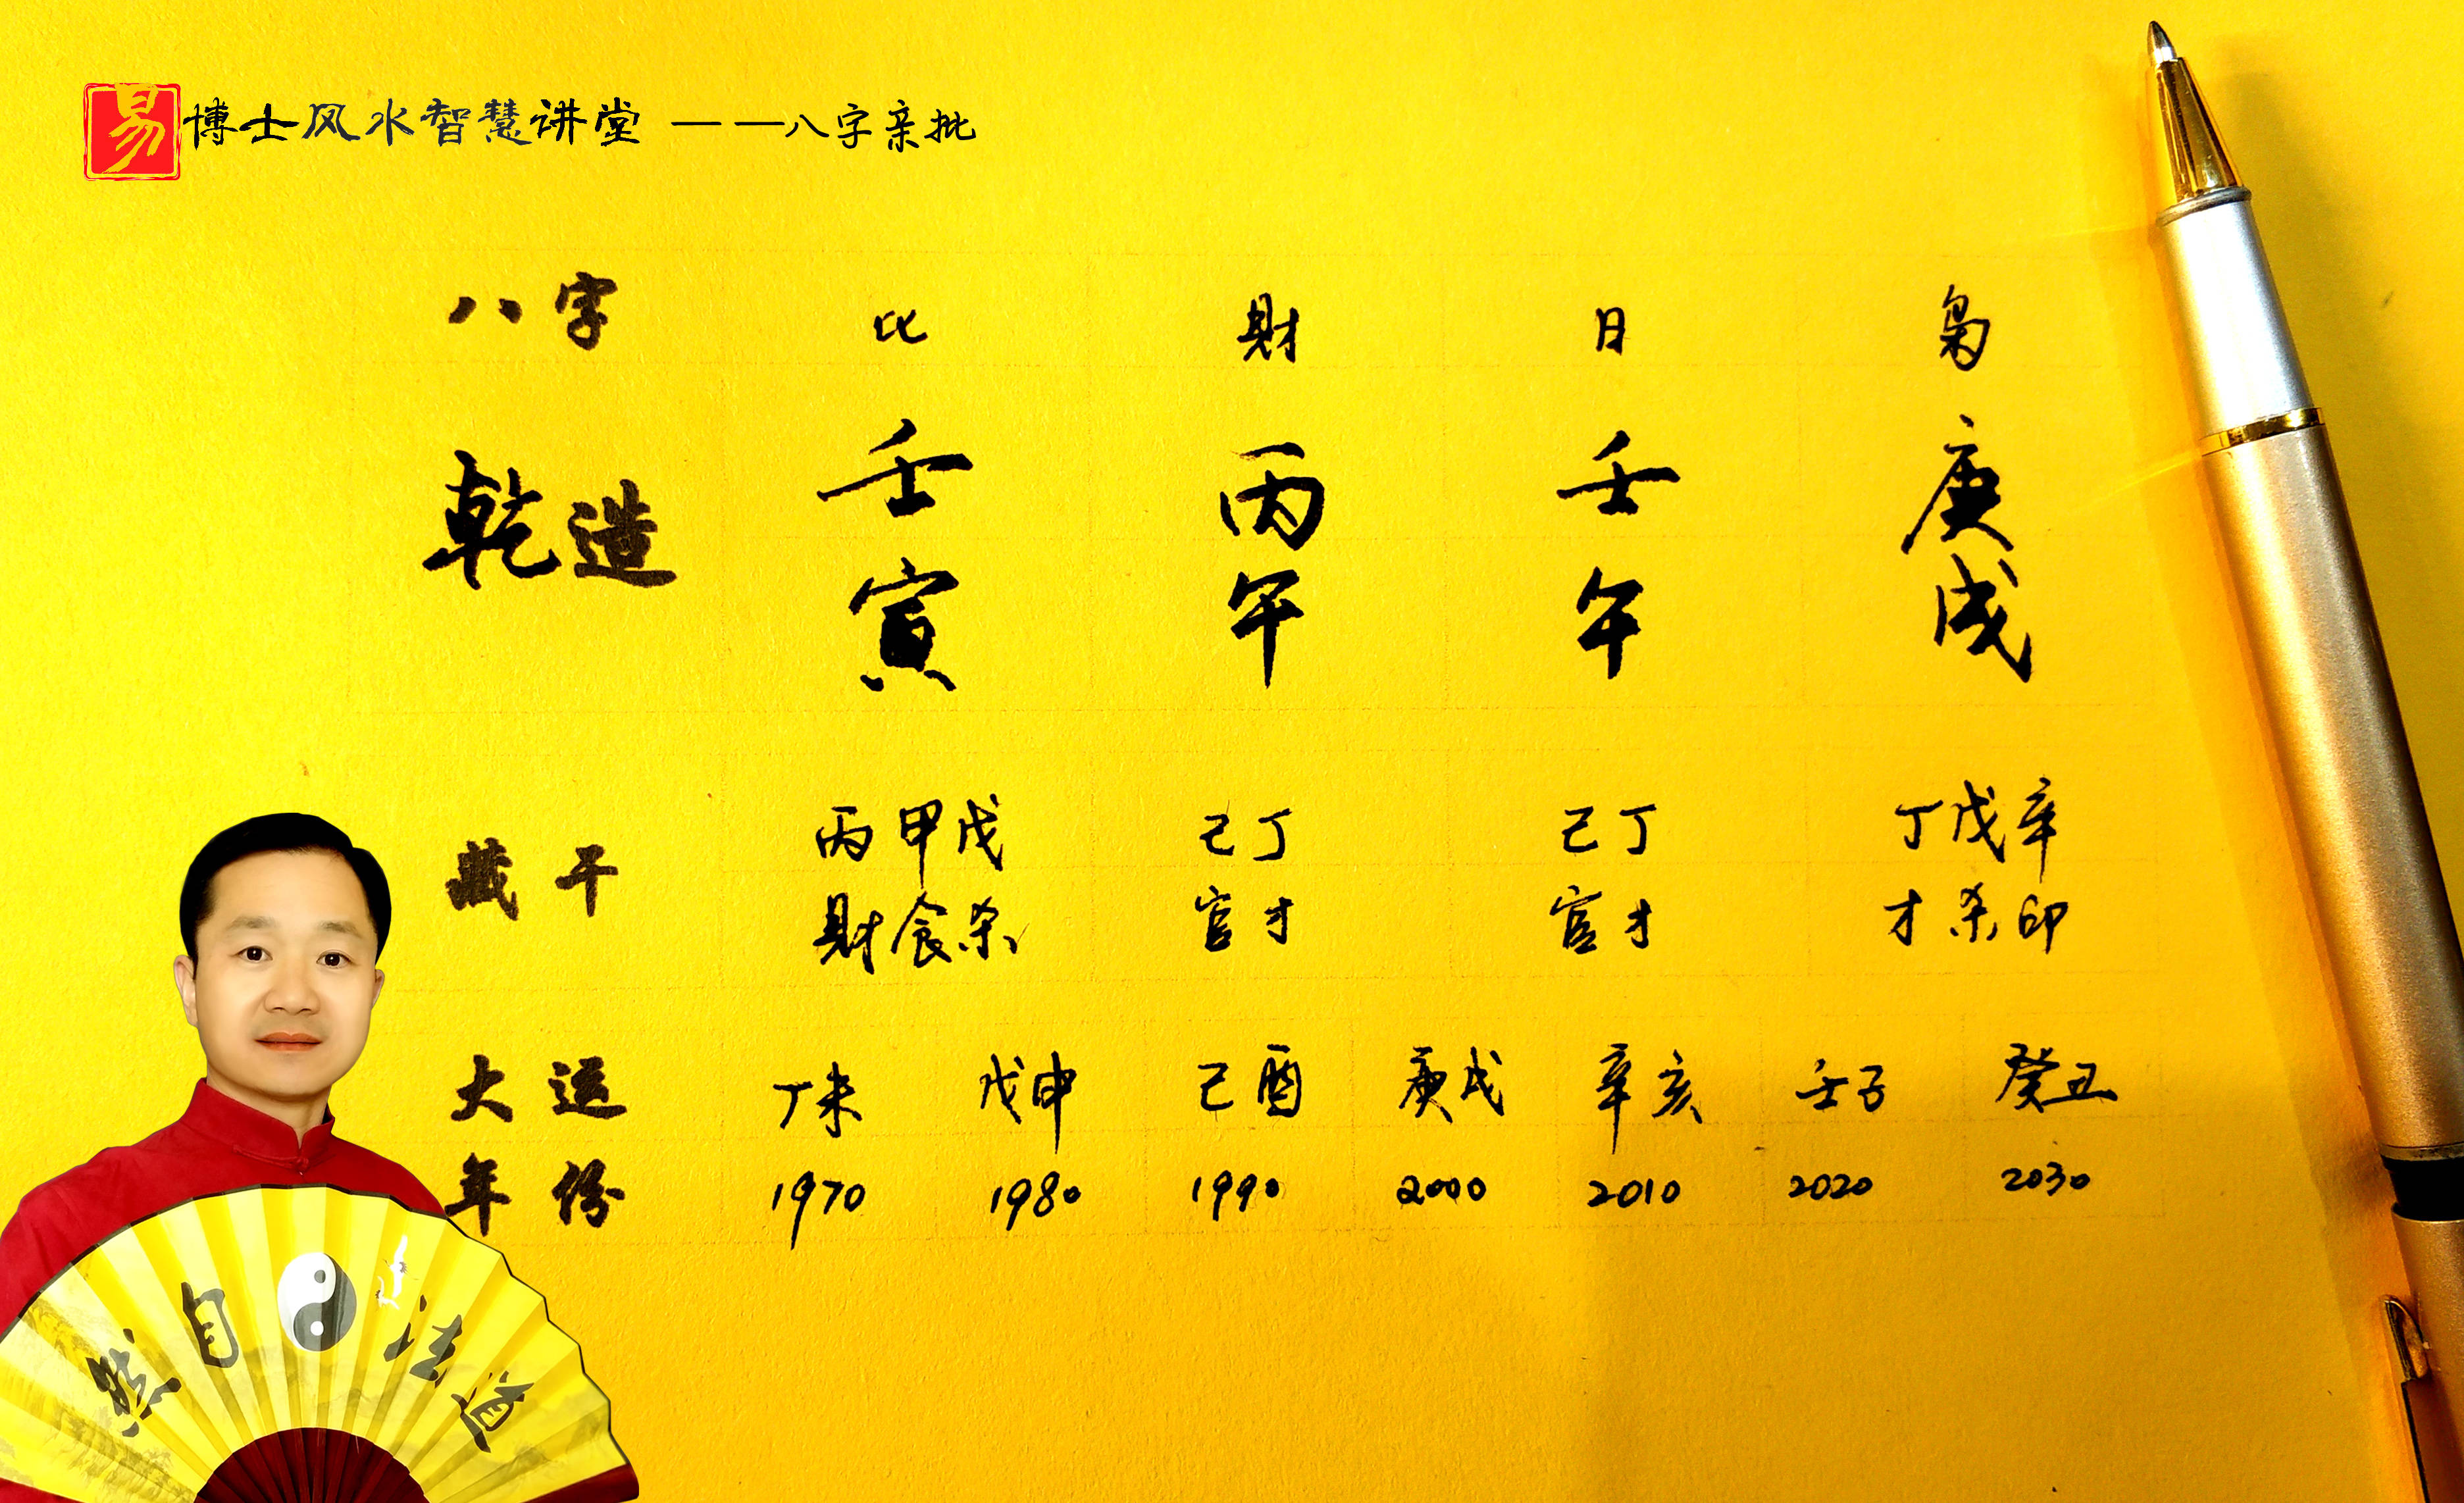 易博士风水智慧讲堂 ——八字亲批
八字 比 财 日 枭
乾造 壬 丙 壬 庚
寅 午 午 戌
藏干 丙甲戊 己丁 己丁 丁戊辛
财食杀 官才 官才 才杀印
大运 丁未 戊申 己酉 庚戌 辛亥 壬子 癸丑
年份 1970 1980 1990 2000 2010 2020 2030
然自法道